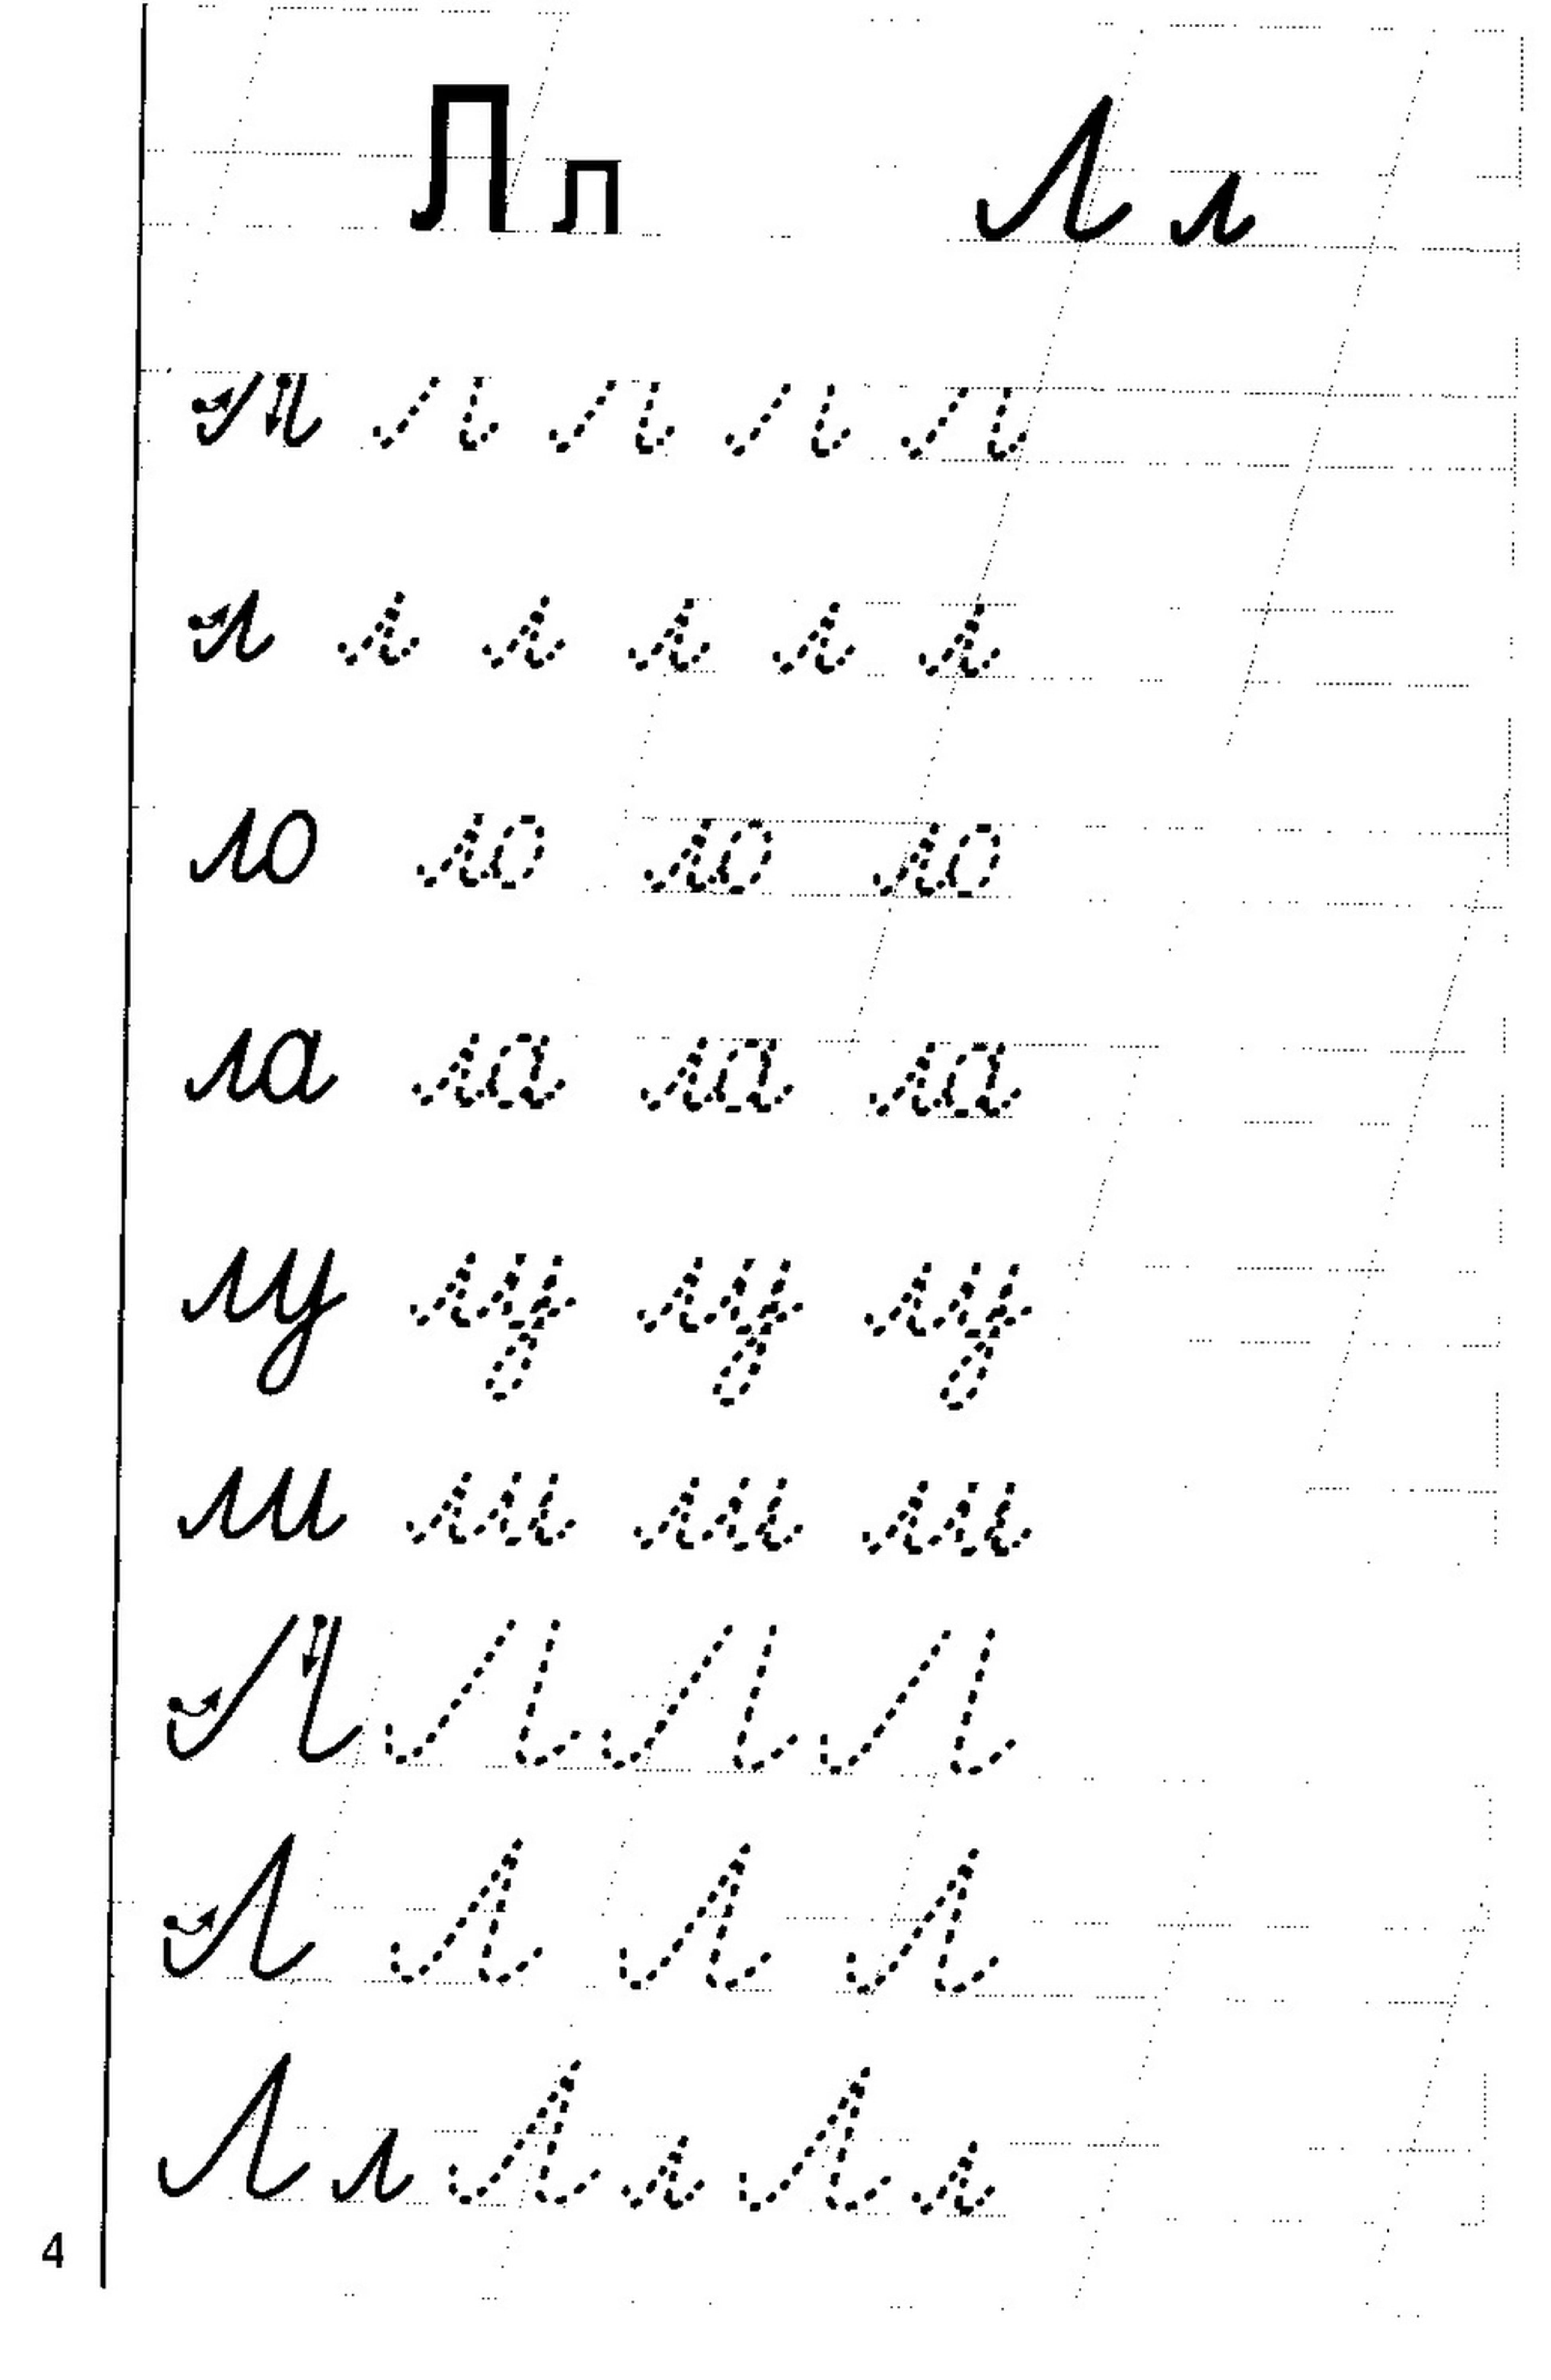 Лл Лл
л л л л л л
ло ло ло ло
ла ла ла ла
лу лу лу лу
ли ли ли ли
Л Л Л Л
Лл Лл Лл
4